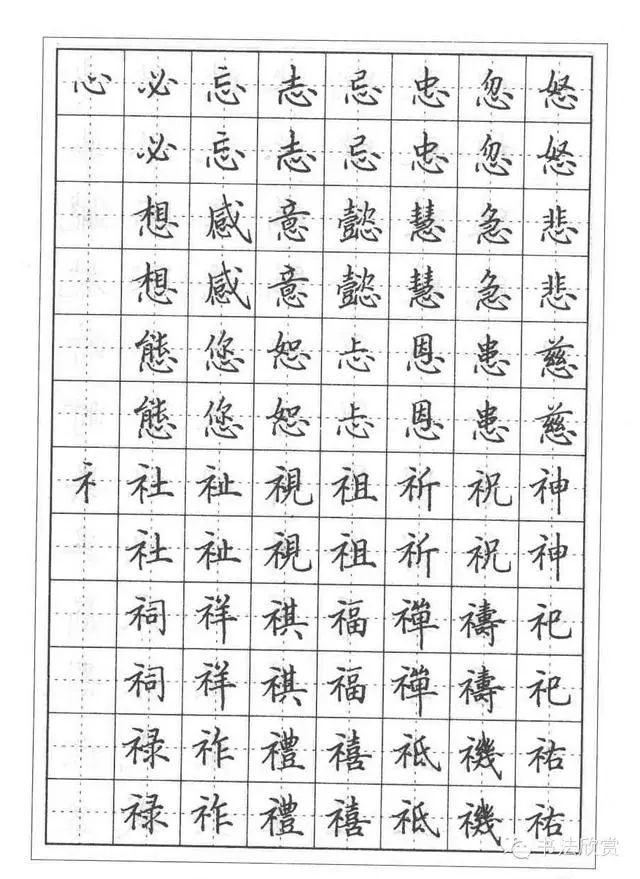 心必忘志忌忠忽怒
必忘志忌忠忽怒
想感意懿慧急悲
想感意懿慧急悲
態您恕忐恩患慈
態您恕忐恩患慈
礻社祉視祖祈祝神
社祉視祖祈祝神
祠祥祺福禪禱祀
祠祥祺福禪禱祀
禄祚禮禧祗禨祐
禄祚禮禧祗禨祐
书法欣赏